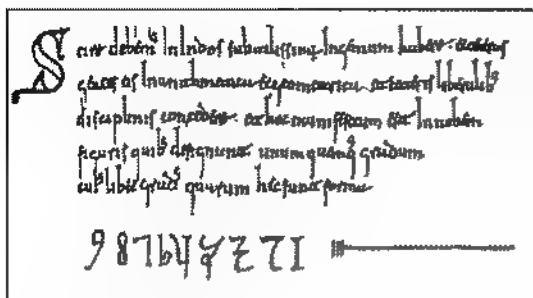 Scire debem' in Indos subtilissimum ingenium habere et ceteras
gentes eis in arithmetica et geometrica et ceteris liberalib'
disciplinis concedere et hoc manifestum est in nobem
figuris quib' designant unumquenq gradum
cuiuslibet grad' quarum hec sunt forma
9 8 7 6 5 4 3 2 1